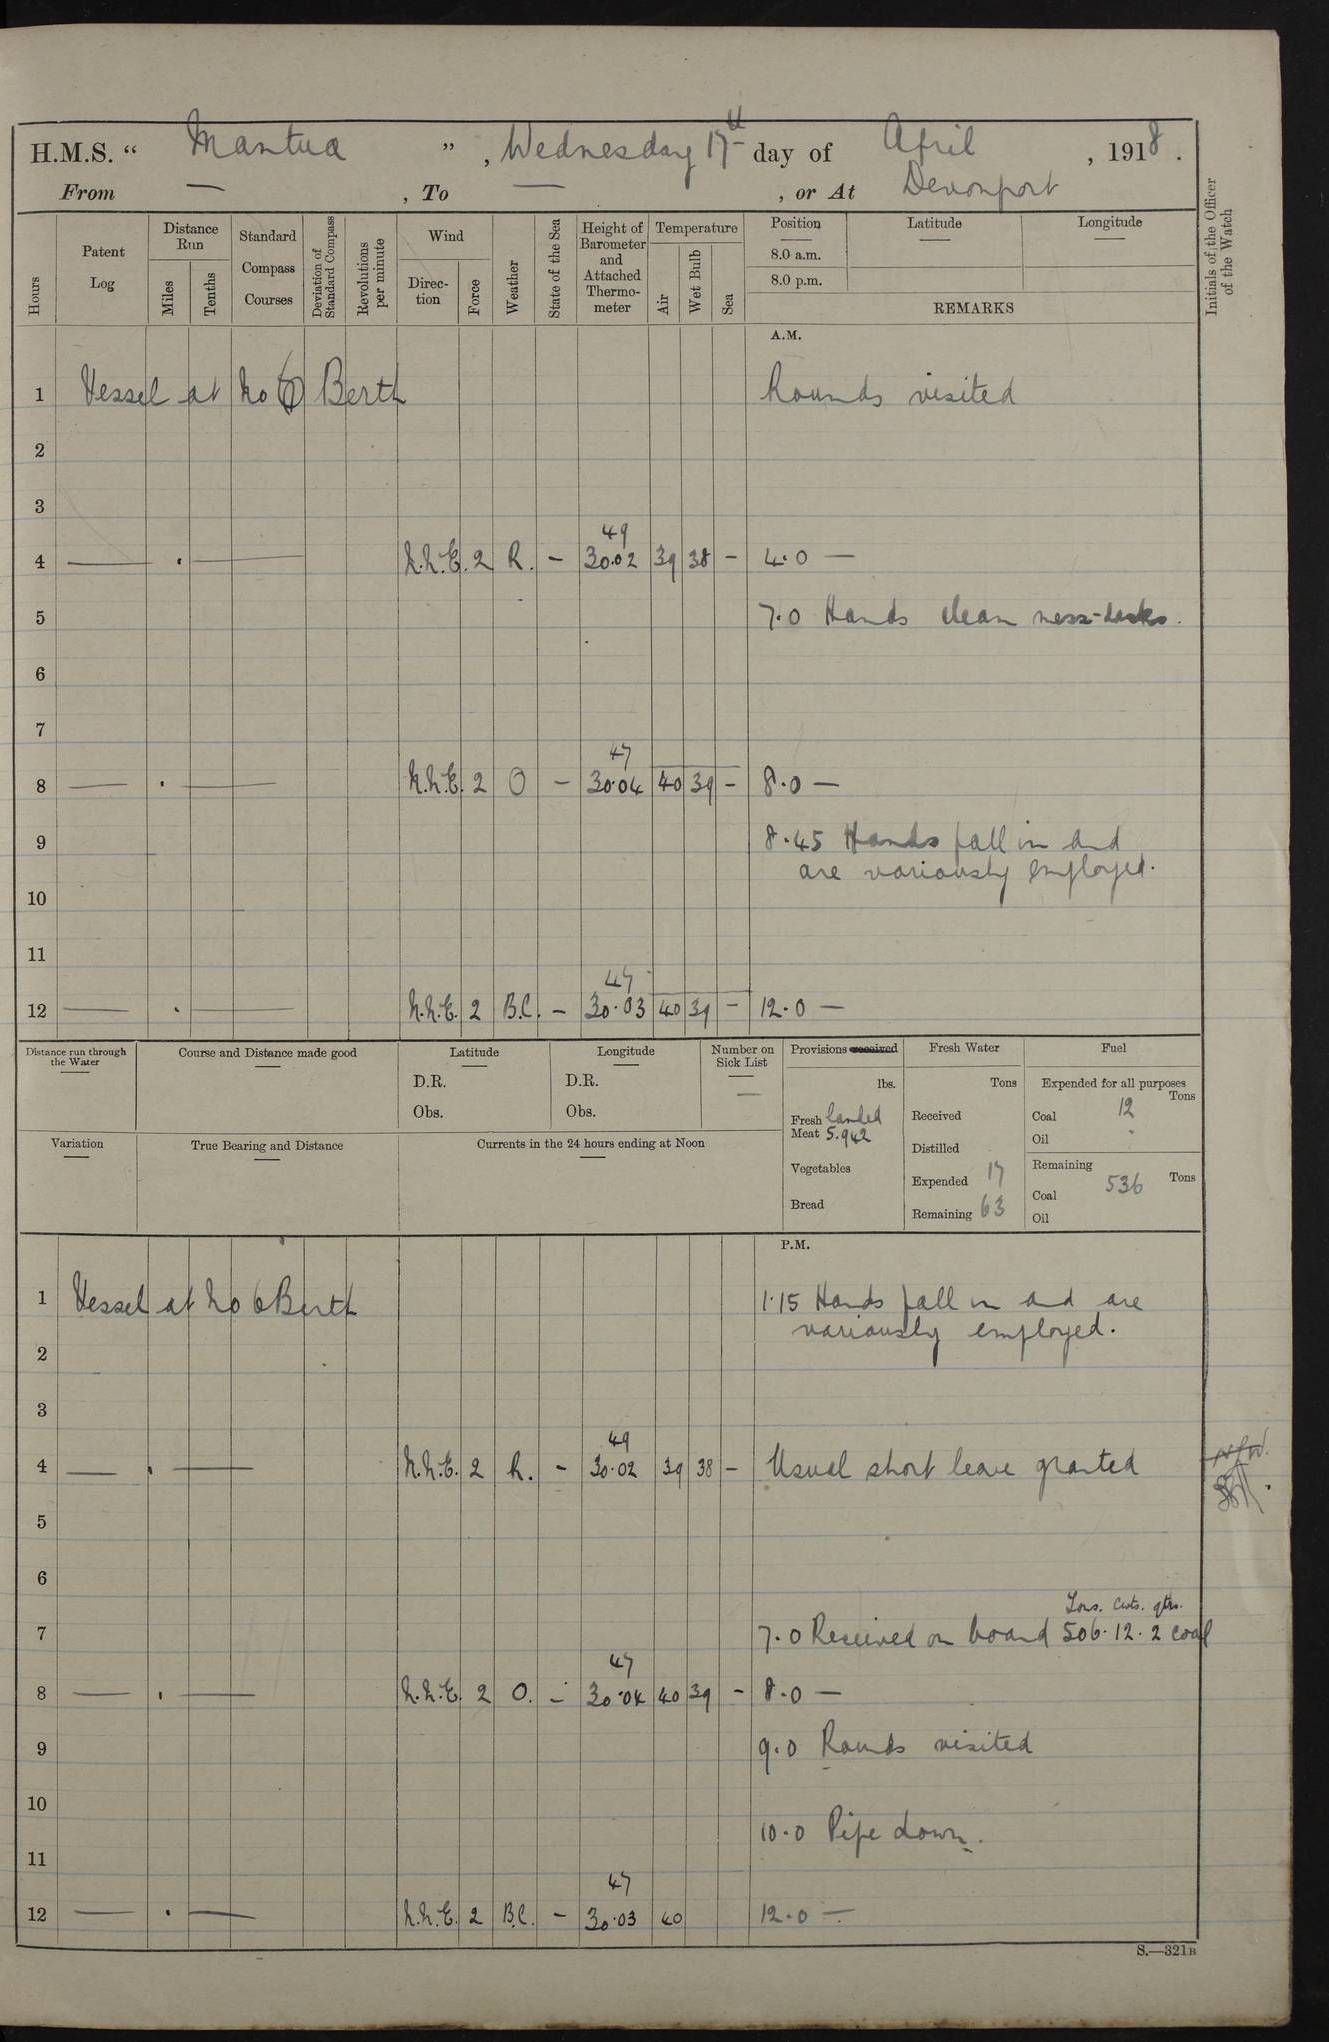 H.M.S. “ Mantua ” , Wednesday 17th day of April , 1918 .
From — , To — , or At Devonport
Hours
Patent Log
Distance Run
Miles
Tenths
Standard Compass Courses
Deviation of Standard Compass
Revolutions per minute
Wind
Direc-tion
Force
Weather
State of the Sea
Height of Barometer and Attached Thermo-meter
Temperature
Air
Wet Bulb
Sea
Position
8.0 a.m.
8.0 p.m.
Latitude
Longitude
REMARKS
Initials of the Officer of the Watch
A.M.
1 Vessel at No 6 Berth Rounds visited
2
3
49
4 — . — N.N.E. 2 R. – 30.02 39 38 – 4.0 —
5 7.0 Hands clean mess-decks.
6
7
47
8 — . — N.N.E. 2 O – 30.04 40 39 – 8.0 —
9 8.45 Hands fall in and
are variously employed.
10
11
47
12 — . — N.N.E. 2 B.C. – 30.03 40 39 – 12.0 —
Distance run through the Water
Course and Distance made good
Latitude
D.R.
Obs.
Longitude
D.R.
Obs.
Number on Sick List
—
Provisions received
lbs.
Fresh Meat landed 5.942
Vegetables
Bread
Fresh Water
Tons
Received
Distilled
Expended 17
Remaining 63
Fuel
Expended for all purposes
Tons
Coal 12
Oil -
Remaining
Tons
Coal 536
Oil
Variation
True Bearing and Distance
Currents in the 24 hours ending at Noon
P.M.
1 Vessel at No 6 Berth 1.15 Hands fall in and are
variously employed.
2
3
49
4 — . — N.N.E. 2 R. – 30.02 39 38 – Usual short leave granted
5
6
Tons. Cwts. qtrs.
7 7.0 Received on board 506.12.2 coal
47
8 — . — N.N.E. 2 O. – 30.04 40 39 – 8.0 —
9 9.0 Rounds visited
10
10.0 Pipe down.
11
47
12 — . — N.N.E. 2 B.C. – 30.03 40 12.0 —
S.—321B